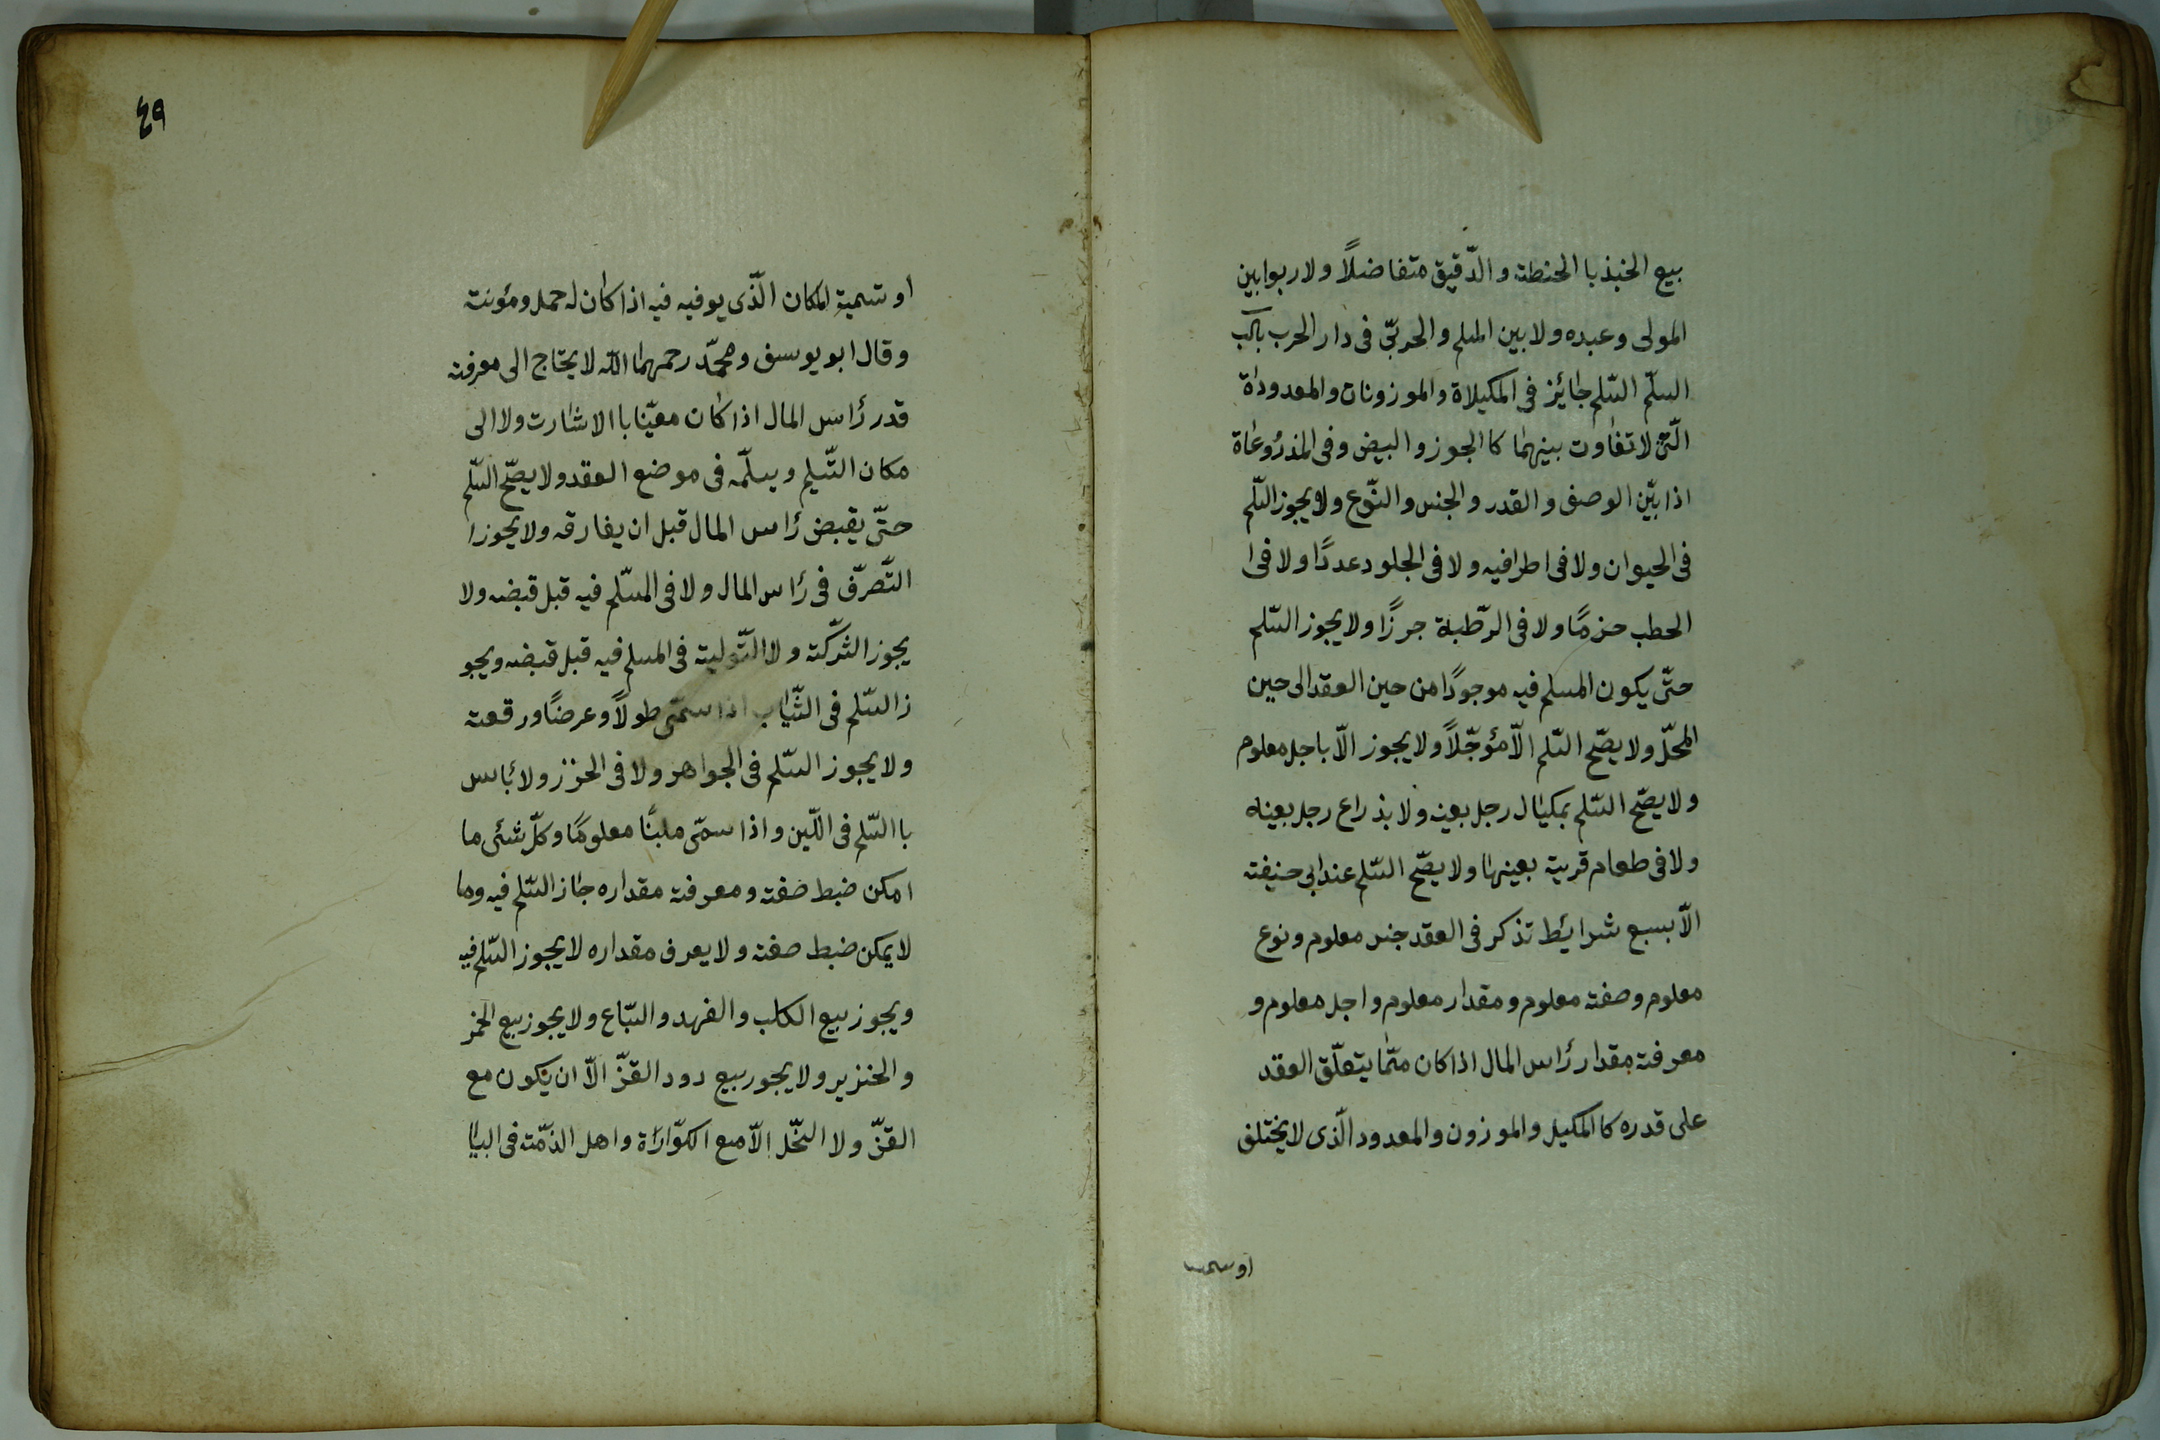 بيع الخبذ با الحنطة و الدّقيق متفاضلاً ولا ربوا بين
المولى وعبده ولا بين المسلم والحربىّ فى دار الحرب باب
السلّم السّلم جائز فى المكيلاة والموزونات والمعدوداة
الّتى لا تفاوت بينهما كا الجوز والبيض وفى المذروعاة
اذا بيّن الوصف و القدر و الجنس و النّوع ولا يجوز السّلم
فى الحيوان ولا فى اطرافيه ولا فى الجلود عددًا ولا فى ا
الحطب حزمًا ولا فى الرّطبة جرزًا ولا يجوز السّلم
حتّى يكون المسلم فيه موجودًا من حين العقد الى حين
المحلّ ولا يصّح السّلم الاّ مؤجّلاً ولا يجوز الاّ باجل معلوم
ولا يصّح السّلم بمكيال رجل بعينه ولا بذراع رجل بعينه
ولا فى طعام قرية بعينها ولا يصّح السّلم عند ابى حنيفة
الاّ بسبع شرايئط تذكر فى العقد جنس معلوم ونوع
معلوم وصفة معلوم ومقدار معلوم واجل معلوم و
معرفة مقدار رٔاس المال اذا كان ممّا يتعلّق العقد
على قدره كا المكيل والموزون والمعدود الّذى لا يختلف
او سمية
٤٩
او تسمية المكان الّذى يوفيه فيه اذا كان له حمل ومؤنة
وقال ابو يوسف ومحمّد رحمهما اللّه لا يحتاج الى معرفة
قدر رٔاس المال اذا كان معيّنا با الاشارت ولا الى
مكان التّسليم ويسلّمه فى موضع العقد ولا يصّح السّلم
حتّى يقبض رٔاس المال قبل ان يفارقه ولا يجوز ا
التّصرّف فى رٔاس المال ولا فى المسّلم فيه قبل قبضه ولا
يجوز الشّركة ولا التّولية فى المسلم فيه قبل قبضه ويجو
ز السّلم فى الثّياب اذا سمّى طولاً وعرضًا ورقعة
ولا يجوز السّلم فى الجواهر ولا فى الخرز ولا بٔاس
با السّلم فى اللّبن و اذا سمّى ملبنًا معلومًا وكلّ شئى ما
امكن ضبط صفته ومعرفة مقداره جاز السّلم فيه وما
لا يمكن ضبط صفته ولا يعرف مقداره لا يجوز السّلم فيه
ويجوز بيع الكلب والفهد والسّباع ولا يجوز بيع الخمر
والخنزير ولا يجوز بيع دود القزّ الاّ ان يكون مع
القزّ ولا النّحل الاّ مع الكوّاراة واهل الذمّة فى البيا